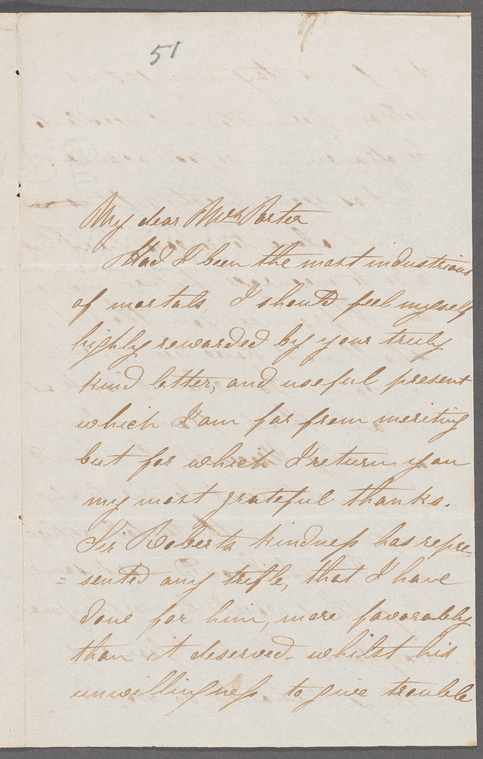 51
My dear Mrs Porter
Had I been the most industrious
of mortals, I should feel myself
highly rewarded by your truly
kind letter, and useful present
which I am far from meriting
but for which I return you
my most grateful thanks.
Sir Roberts kindness has repre=
=sented any trifle, that I have
done for him, more favorably
than it deserved - whilst his
unwillingness to give trouble